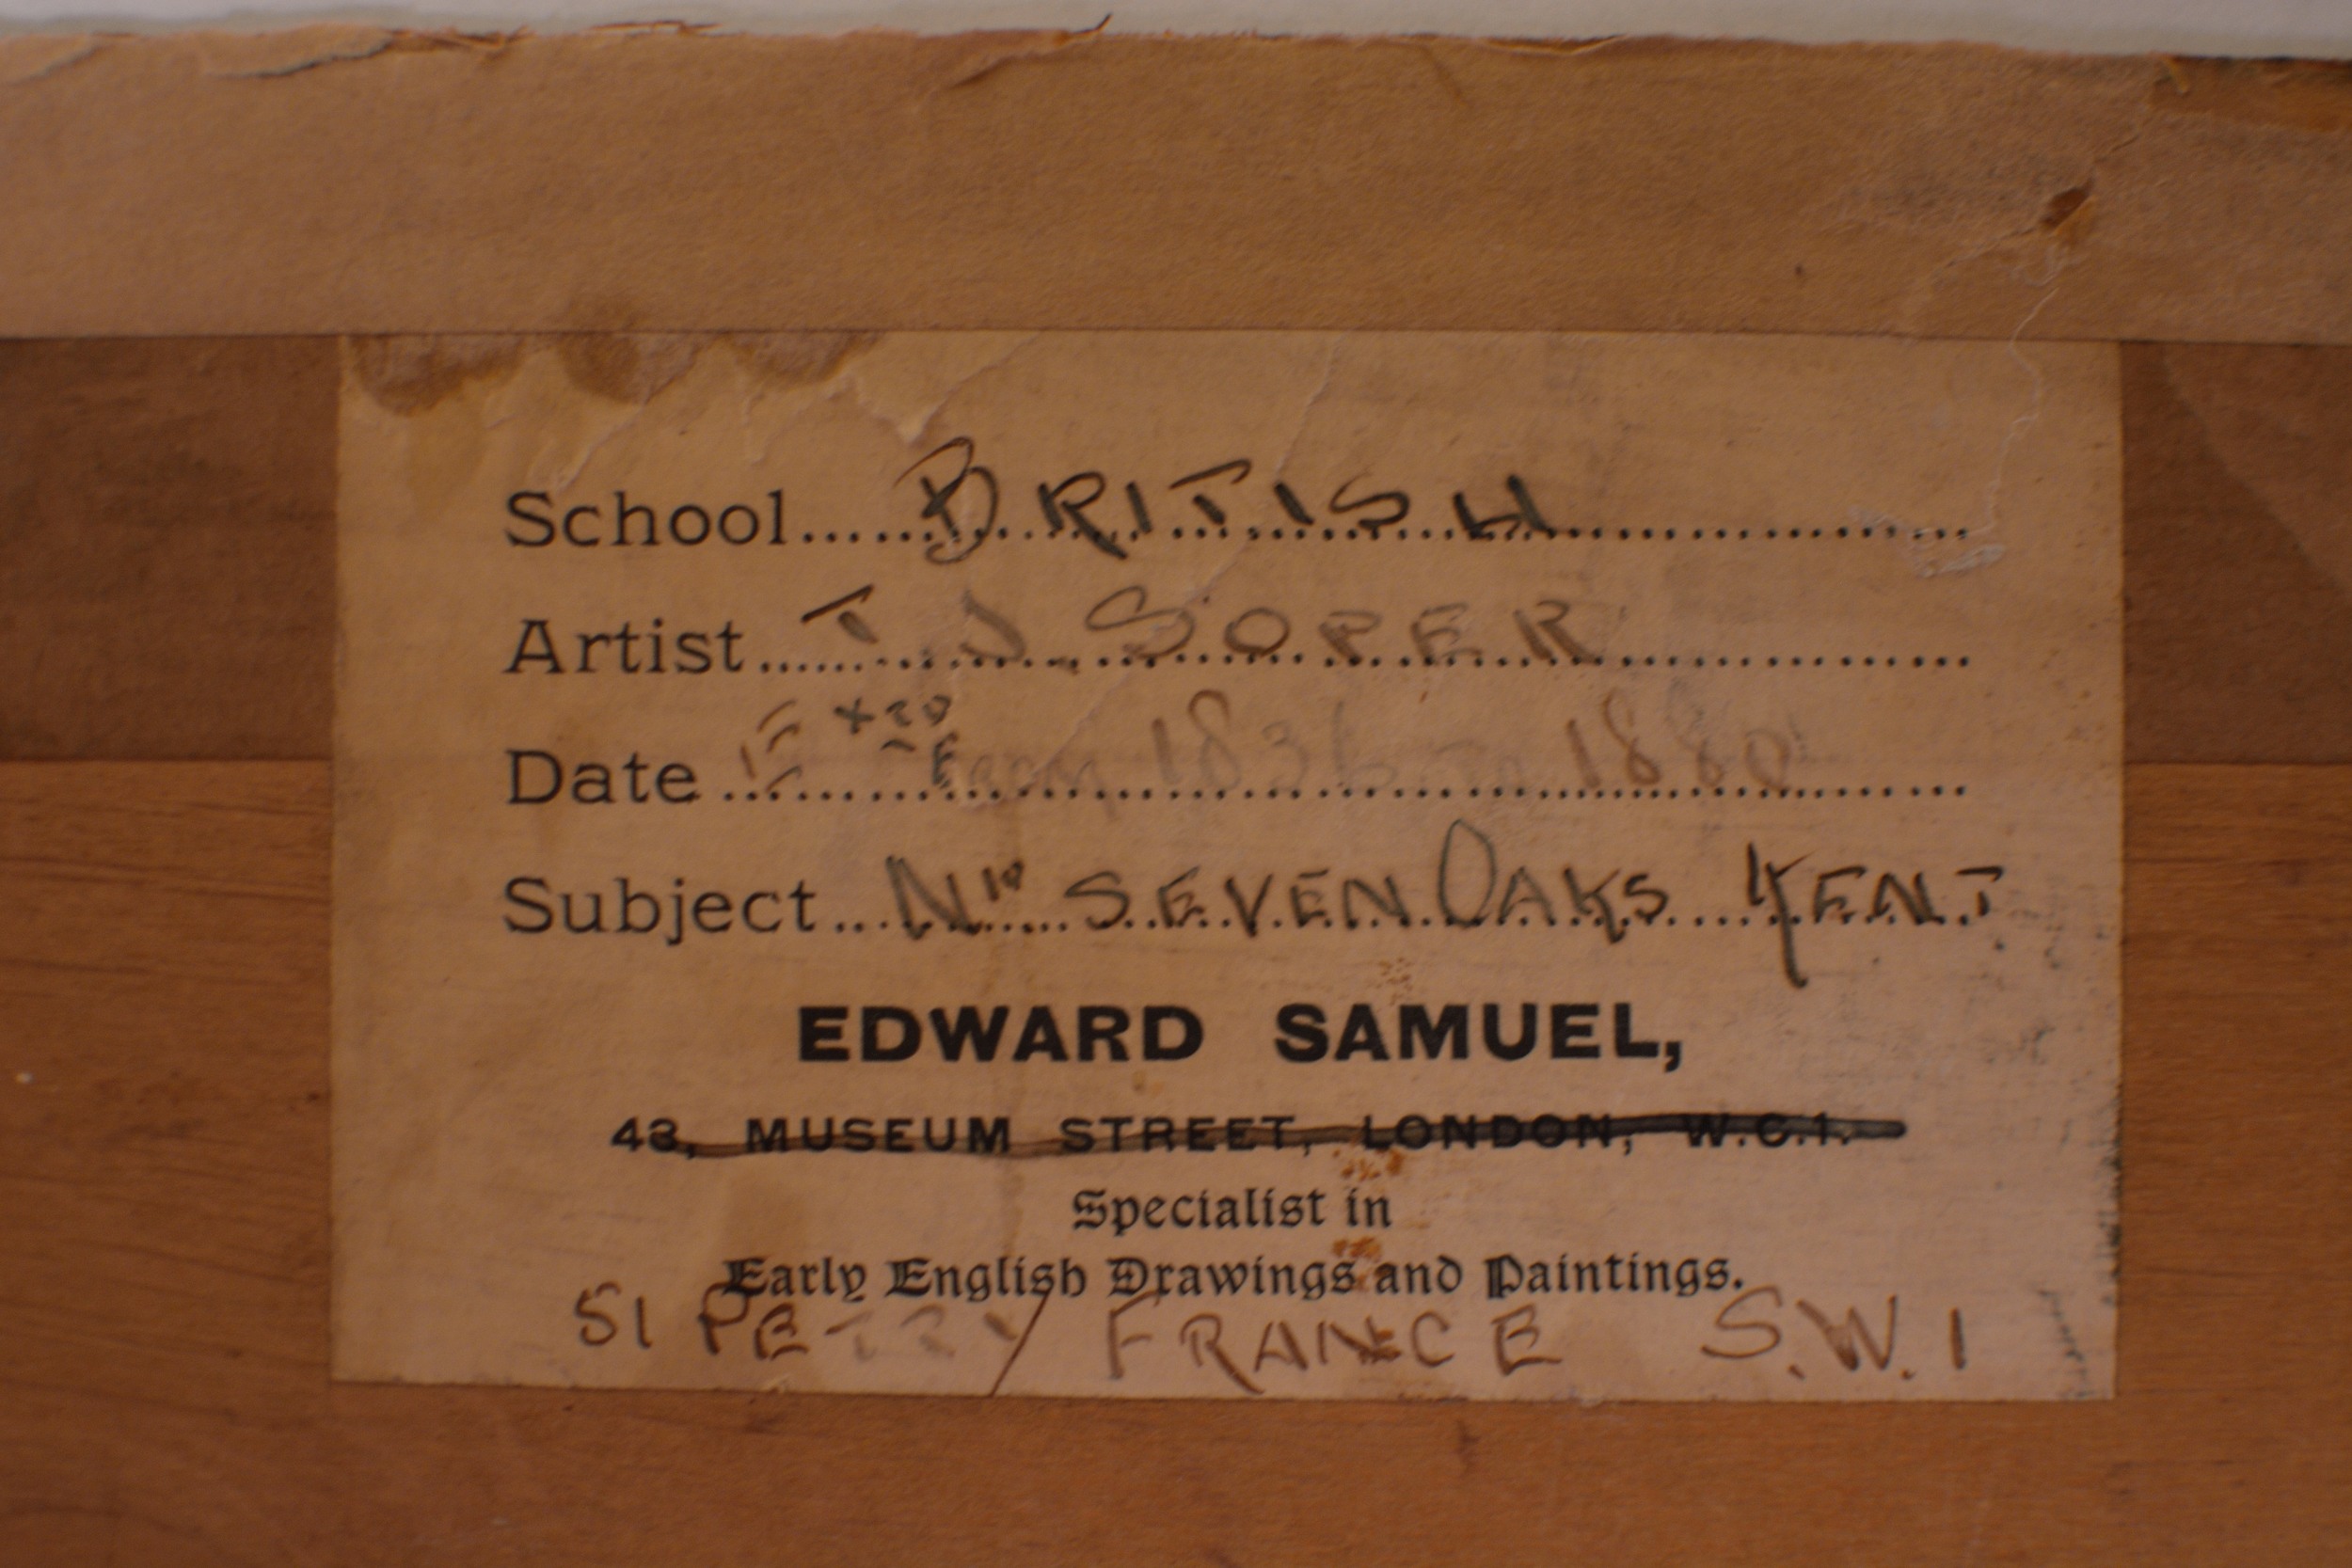 School...... BRITISH
Artist...... T. J. SOPER
Date ... Exd From 1836 to 1880
Subject... Nr SEVENOAKS KENT
EDWARD SAMUEL,
43, MUSEUM STREET, LONDON, W.C.1.
Specialist in
Early English Drawings and Paintings.
51 PETTY FRANCE S.W.1